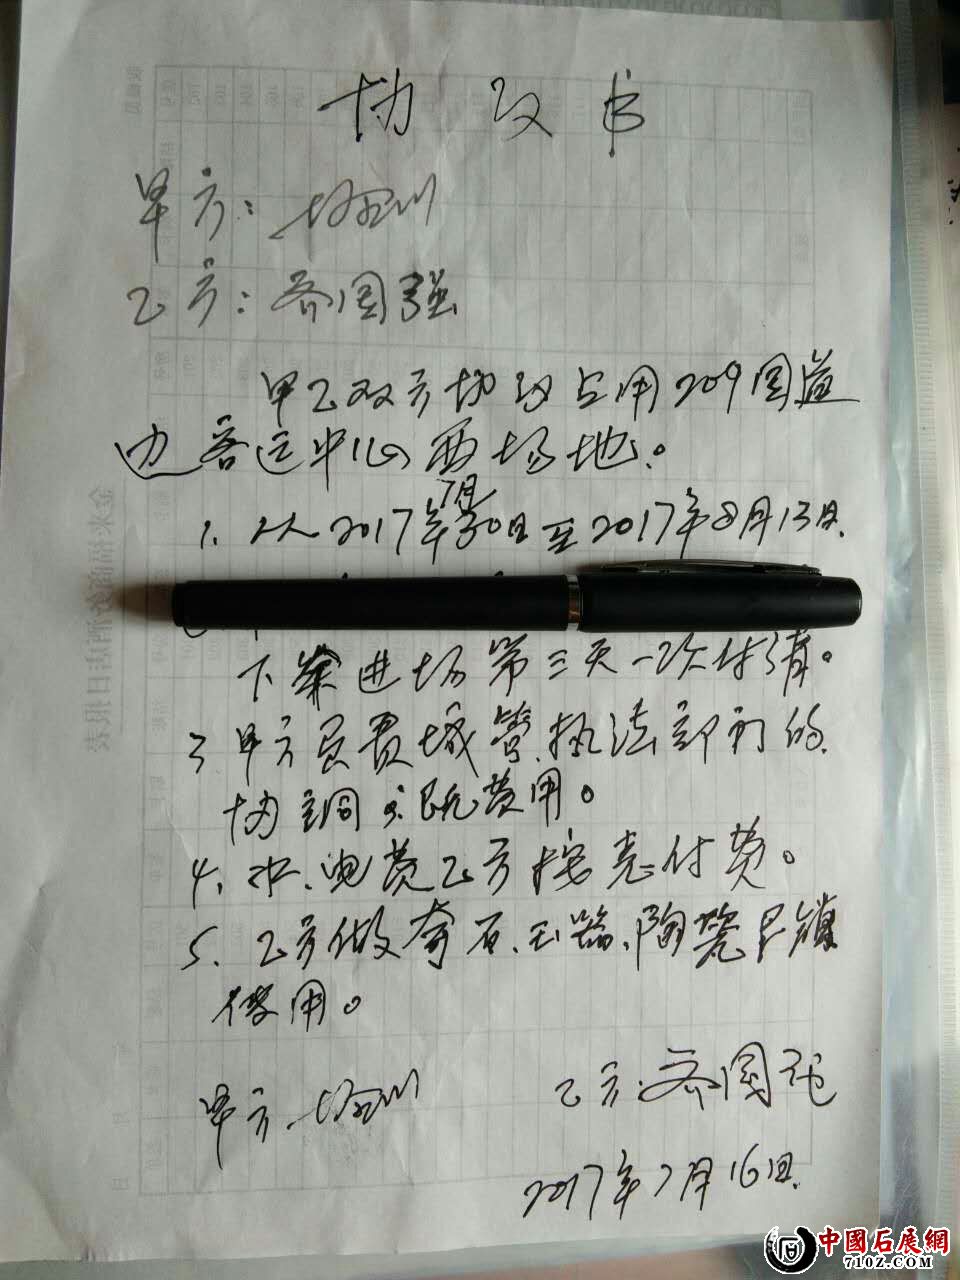 协议书
甲方：
乙方：齐国强
甲乙双方协议占用209国道
边客运中心西场地。
7月
1. 从2017年30日至2017年8月13日.
下 进场第三天一次付清。
3 甲方负责城管.执法部门的
协调 费用。
4、水、电费乙方按表付费。
5、乙方做奇石、玉器、陶瓷展销
使用。
甲方. 乙方：齐国强
2017年7月16日.
金米福酒店日报表
中國石展網
7102.COM